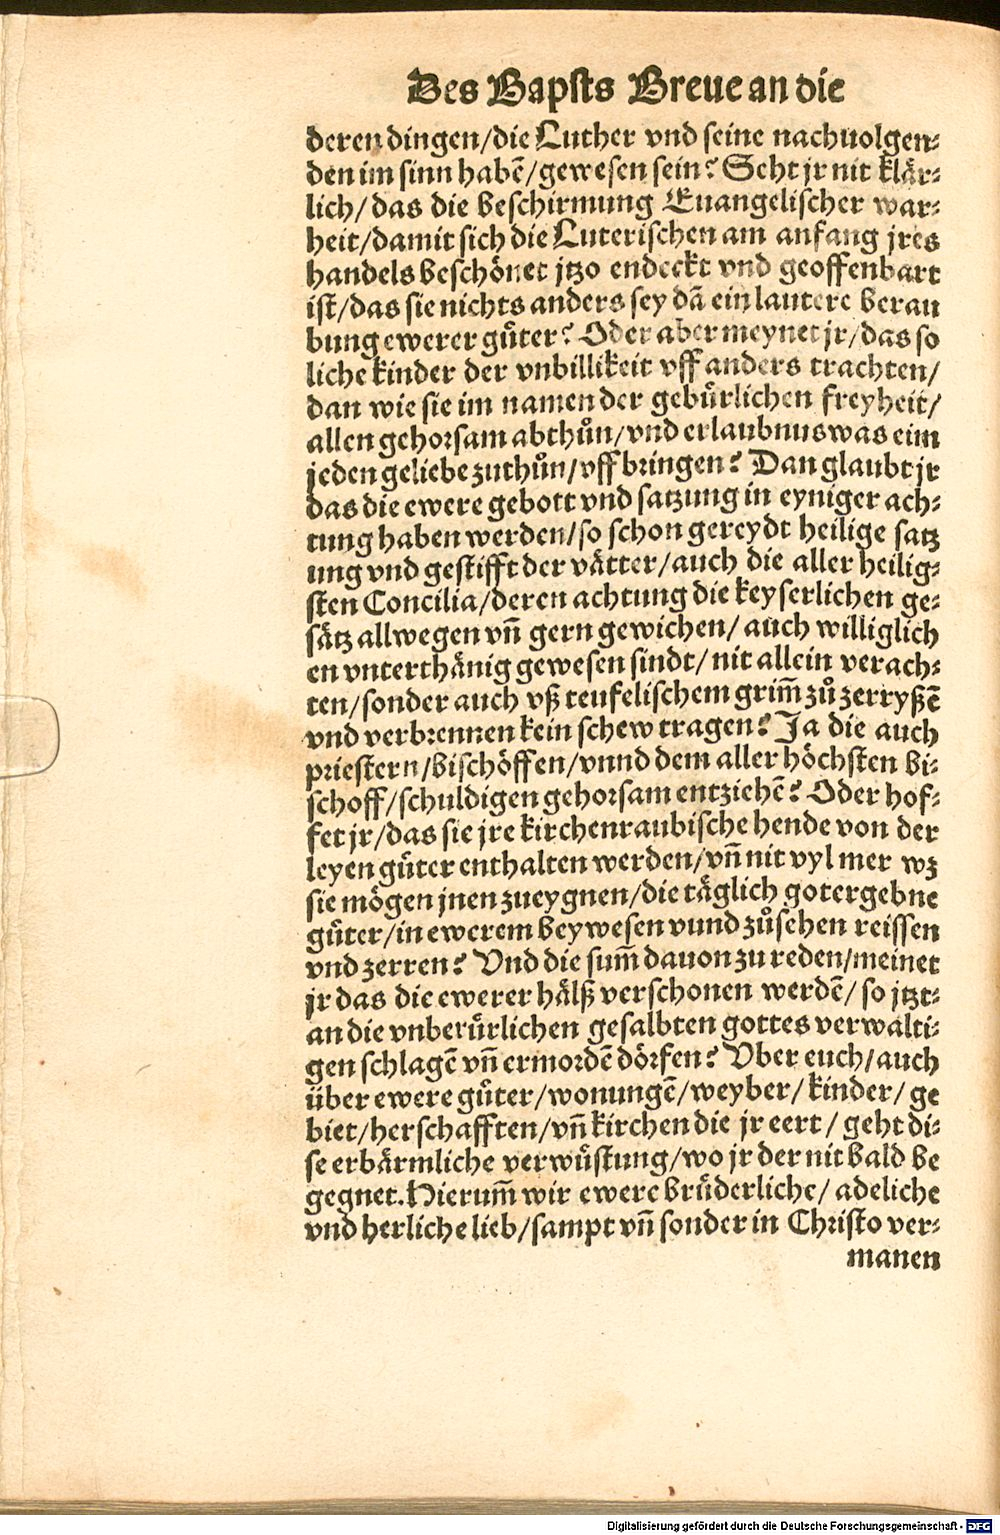 Des Bapsts Breue an die
deren dingen/die Luther vnd seine nachuolgen⸗
den im sinn habẽ/gewesen sein? Seht jr nit klär⸗
lich/das die beschirmung Euangelischer war⸗
heit/damit sich die Luterischen am anfang jres
handels beschönet jtzo endeckt vnd geoffenbart
ist/das sie nichts anders sey dã ein lautere berau
bung ewerer gůter? Oder aber meynet jr/das so
liche kinder der vnbillikeit vff anders trachten/
dan wie sie im namen der gebürlichen freyheit/
allen gehorsam abthůn/vnd erlaubnus was eim
jeden geliebe zuthůn/vff bringen? Dan glaubt jr
das die ewere gebott vnd satzung in eyniger ach⸗
tung haben werden/so schon gereydt heilige satz
ung vnd gestifft der vätter/auch die aller heilig⸗
sten Concilia/deren achtung die keyserlichen ge⸗
sätz allwegen vñ gern gewichen/auch williglich
en vnterthänig gewesen sindt/nit allein verach⸗
ten/sonder auch vß teufelischem grim̃ zů zerryßẽ
vnd verbrennen kein schew tragen? Ja die auch
priestern/bischöffen/vnnd dem aller höchsten bi⸗
schoff/schuldigen gehorsam entziehẽ? Oder hof⸗
fet jr/das sie jre kirchenraubische hende von der
leyen gůter enthalten werden/vñ nit vyl mer wz
sie mögen jnen zueygnen/die täglich gotergebne
gůter/in ewerem beywesen vund zůsehen reissen
vnd zerren? Vnd die sum̃ dauon zu reden/meinet
jr das die ewerer hälß verschonen werdẽ/so jtzt⸗
an die vnberürlichen gesalbten gottes verwalti⸗
gen schlagẽ vñ ermordẽ dörfen? Vber euch/auch
über ewere gůter/wonungẽ/weyber/kinder/ge
biet/herschafften/vñ kirchen die jr eert/geht di⸗
se erbärmliche verwüstung/wo jr der nit bald be
gegnet. Hierum̃ wir ewere brüderliche/adeliche
vnd herliche lieb/sampt vñ sonder in Christo ver⸗
manen
Digitalisierung gefördert durch die Deutsche Forschungsgemeinschaft - DFG